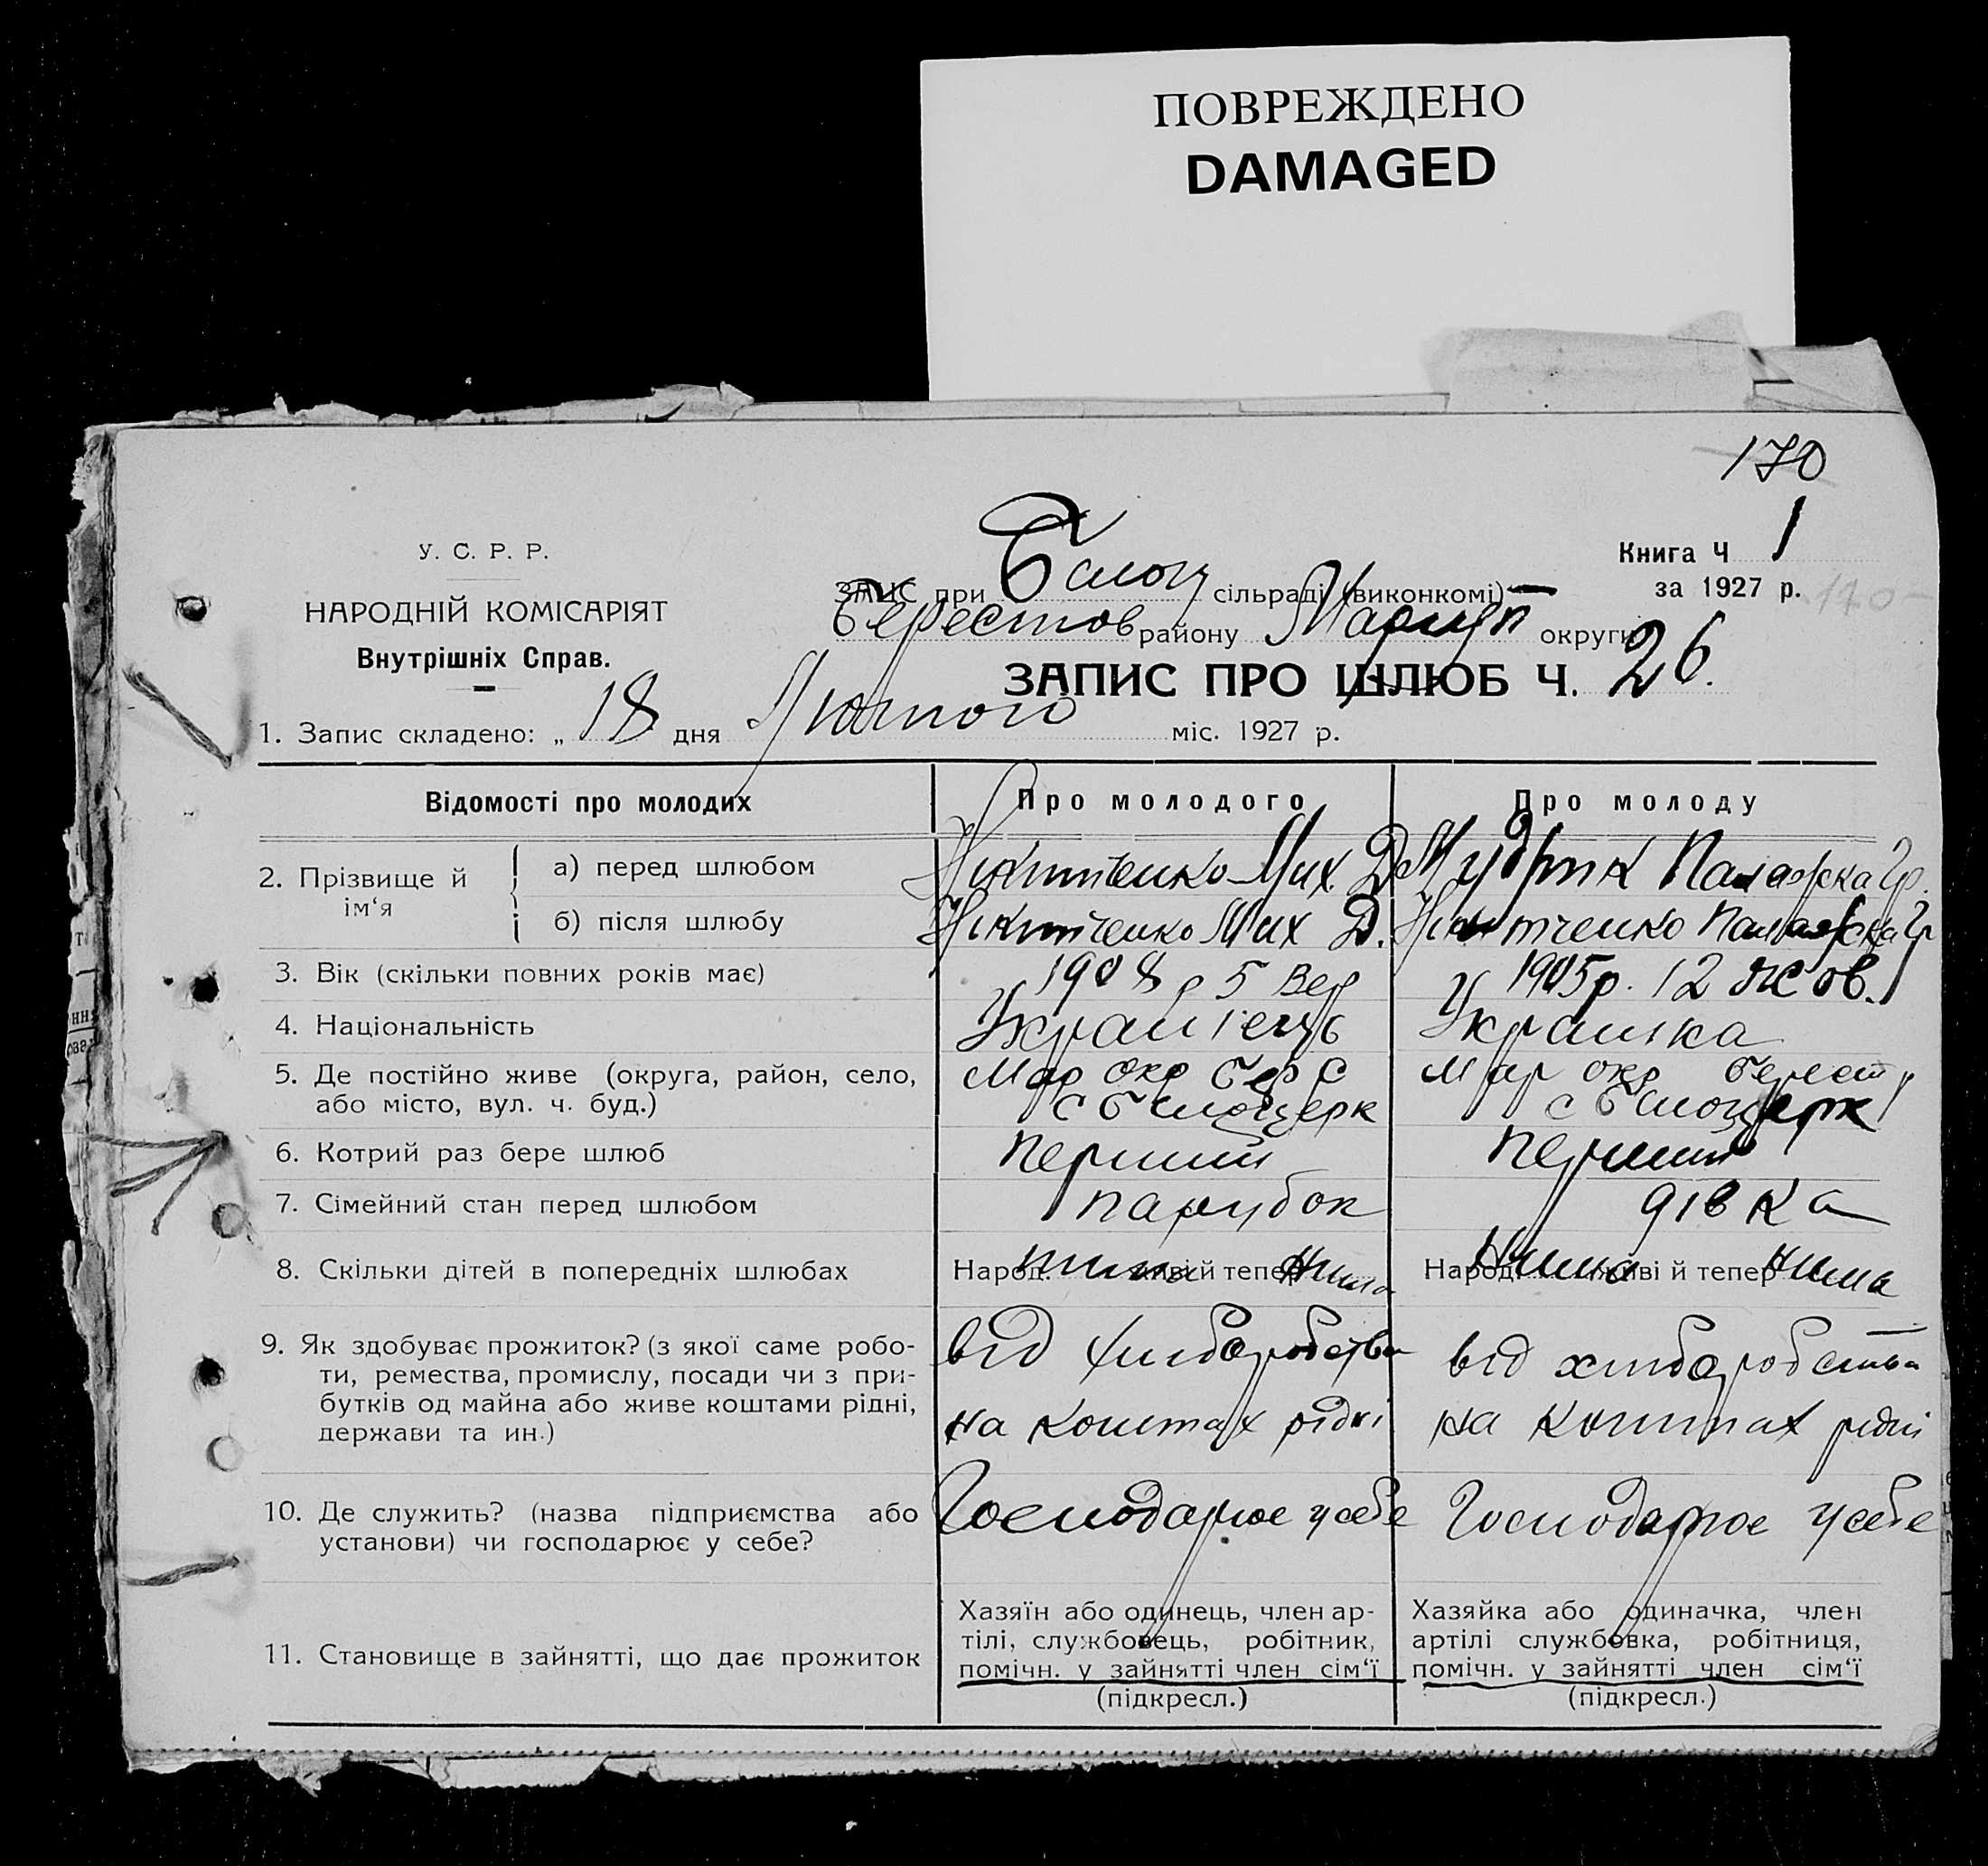 ПОВРЕЖДЕНО
DAMAGED
170
У. С. Р. Р.
НАРОДНІЙ КОМІСАРІЯТ
Внутрішніх Справ.
Книга Ч 1
за 1927 р.
170
ЗАПИС при Білоц сільраді (виконкомі)
Берестов району Маріуп округи
ЗАПИС ПРО ШЛЮБ Ч. 26.
1. Запис складено: „ 18 дня Лютого міс. 1927 р.
Відомості про молодих
Про молодого
Про молоду
2. Прізвище й ім‘я
а) перед шлюбом
Нікитченко Мих. Д.
Мудрик Палажка Гр.
б) після шлюбу
Нікитченко Мих Д.
Нікитченко Палажка Гр
3. Вік (скільки повних років має)
1908 р 5 Вер
1905 р. 12 жов.
4. Національність
Украінець
Украінка
5. Де постійно живе (округа, район, село,
або місто, вул. ч. буд.)
Мар окр Бер Р
с Білоцерк
Мар окр Берест р
с Білоцерк
6. Котрий раз бере шлюб
перший
перший
7. Сімейний стан перед шлюбом
парубок
дівка
8. Скільки дітей в попередніх шлюбах
Народ. нима живі й тепер нима
Народ. нима живі й тепер нима
9. Як здобуває прожиток? (з якої саме робо-
ти, ремества, промислу, посади чи з при-
бутків од майна або живе коштами рідні,
держави та ин.)
від хліборобства
на коштах рідні
від хліборобства
на коштах рідні
10. Де служить? (назва підприємства або
установи) чи господарює у себе?
Господарює у себе
Господарює у себе
11. Становище в зайнятті, що дає прожиток
Хазяїн або одинець, член ар-
тілі, службовець, робітник,
помічн. у зайнятті член сім‘ї
(підкресл.)
Хазяйка або одиначка, член
артілі службовка, робітниця,
помічн. у зайнятті член сім‘ї
(підкресл.)